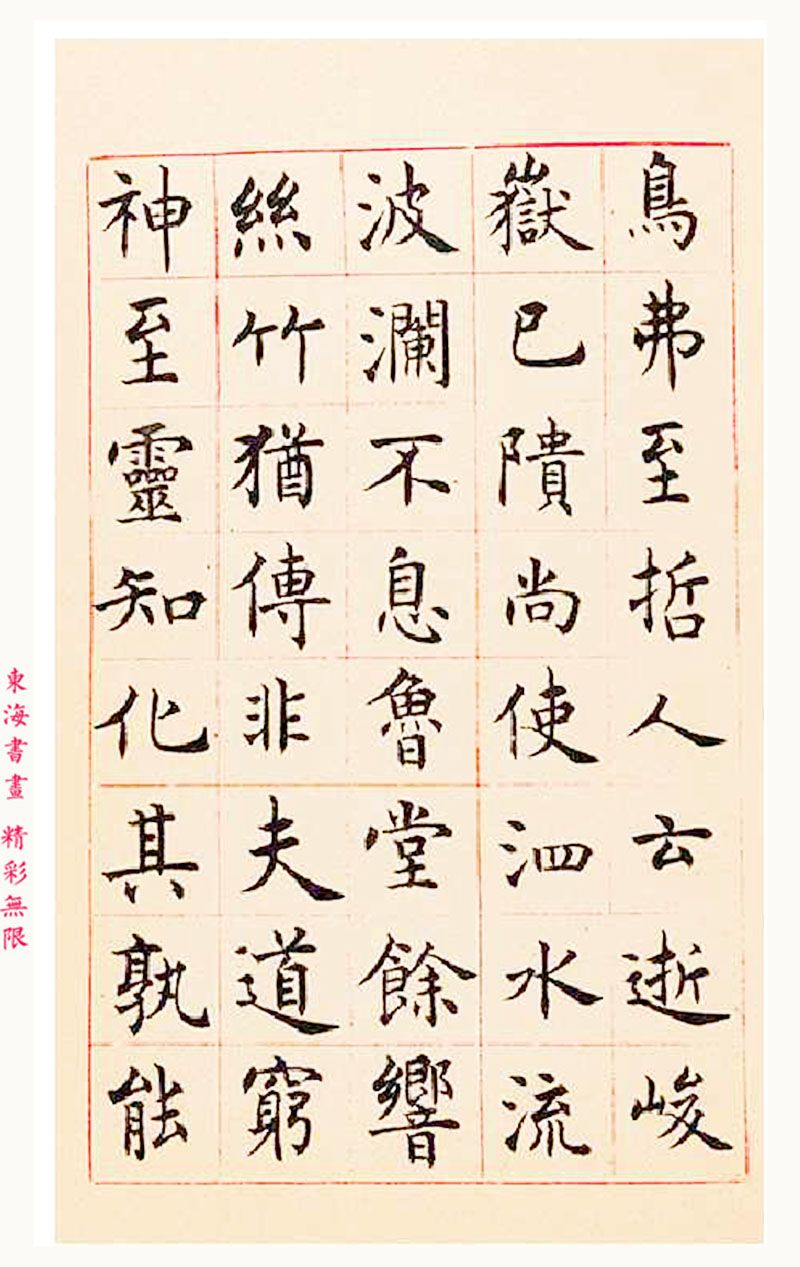 鳥弗至哲人云逝峻
嶽已隤尚使泗水流
波瀾不息魯堂餘響
絲竹猶傳非夫道窮
神至靈知化其孰能
東海書畫 精彩無限